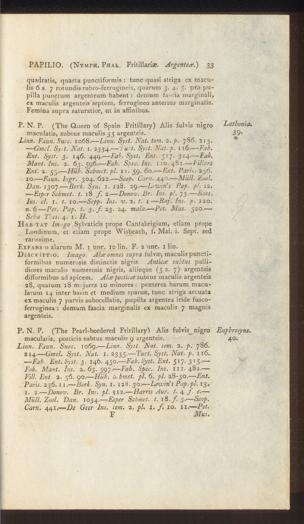 PAPILIO. (Nymph. Phal. Fritillariæ. Argenteæ.) 33
quadratis, quarta punctiformis: tunc quasi striga ex macu-
lis 6 s. 7 rotundis rubro-ferrugineis, quarum 3. 4. 5. pra pu-
pilla punctum argenteum habent: demum fascia marginali,
ex maculis argenteis septem, ferrugineo anterius marginatis.
Femina supra saturatior, et in affinibus.
P. N. P. (The Queen of Spain Fritillary) Alis fulvis nigro
maculatis, subtus maculis 35 argenteis.
Lathonia.
39.
*
Linn. Faun. Suec. 1068.—Linn. Syst. Nat. tom. 2. p. 786. 213.
—Gmel. Syst. Nat. 1. 2334.—Turt. Syst. Nat. p. 116.—Fab.
Ent. Syst. 3. 146. 449.—Fab. Syst. Ent. 517. 314.—Fab.
Mant. Ins. 2. 63. 596.—Fab. Spec. Ins. 110. 481.—Villars
Ent. 2. 55.—Hüb. Schmet. pl. 11. 59. 60.—Ent. Paris. 256.
10.—Faun. Ingr. 304. 622.—Scop. Carn. 440.—Müll. Zool.
Dan. 1307.—Berk. Syn. 1. 128. 29.—Lewin's Pap. pl. 12.
—Esper Schmet. t. 18. f. 2.—Donov. Br. Ins. pl. 73.—Roes.
Ins. cl. 1. t. 10.—Scop. Ins. v. 2. t. 1.—Raj. Ins. p. 120.
n. 6.—Pet. Pap. t. 3. f. 23. 24. male.—Pet. Mus. 520.—
Seba Thes. 4. 1. H.
Habitat Imago Sylvaticis prope Cantabrigiam, etiam prope
Londinum, et etiam prope Wisbeach, f. Mai. i. Sept. sed
rarissime.
Expansus alarum M. 1 unc. 10 lin. F. 2 unc. 1 lin.
Descriptio. Imago. Alæ omnes supra fulvæ, maculis puncti-
formibus numerosis distinctis nigris. Anticæ subtus palli-
diores maculis numerosis nigris, aliisque (5 s. 7) argenteis
difformibus ad apicem. Alæ posticæ subtus maculis argenteis
28, quarum 18 majores 10 minores: penterea harum macu-
larum 14 inter basin et medium sparsæ, tunc striga arcuata
ex maculis 7 parvis subocellatis, pupilla argentea iride fusco-
ferruginea: demum fascia marginalis ex maculis 7 magnis
argenteis.
P. N. P. (The Pearl-bordered Fritillary) Alis fulvis nigro
maculatis, posticis subtus maculis 9 argenteis.
Euphrosyne.
40.
Linn. Faun. Suec. 1069.—Linn. Syst. Nat. tom. 2. p. 786.
214.—Gmel. Syst. Nat. 1. 2335.—Turt. Syst. Nat. p. 116.
—Fab. Ent. Syst. 3. 146. 450.—Fab. Syst. Ent. 517. 315.—
Fab. Mant. Ins. 2. 63. 597.—Fab. Spec. Ins. 111. 482.—
Vill. Ent. 2. 56. 90.—Hüb. Schmet. pl. 6. pl. 28-30.—Ent.
Paris. 256. 11.—Berk. Syn. 1. 128. 30.—Lewin's Pap. pl. 13.
1. 2.—Donov. Br. Ins. pl. 312.—Harris Aur. t. 4. f. c.—
Müll. Zool. Dan. 1034.—Esper Schmet. t. 18. f. 3.—Scop.
Carn. 441.—De Geer Ins. tom. 2. pl. 1. f. 10. 11.—Pet.
F
Mus.